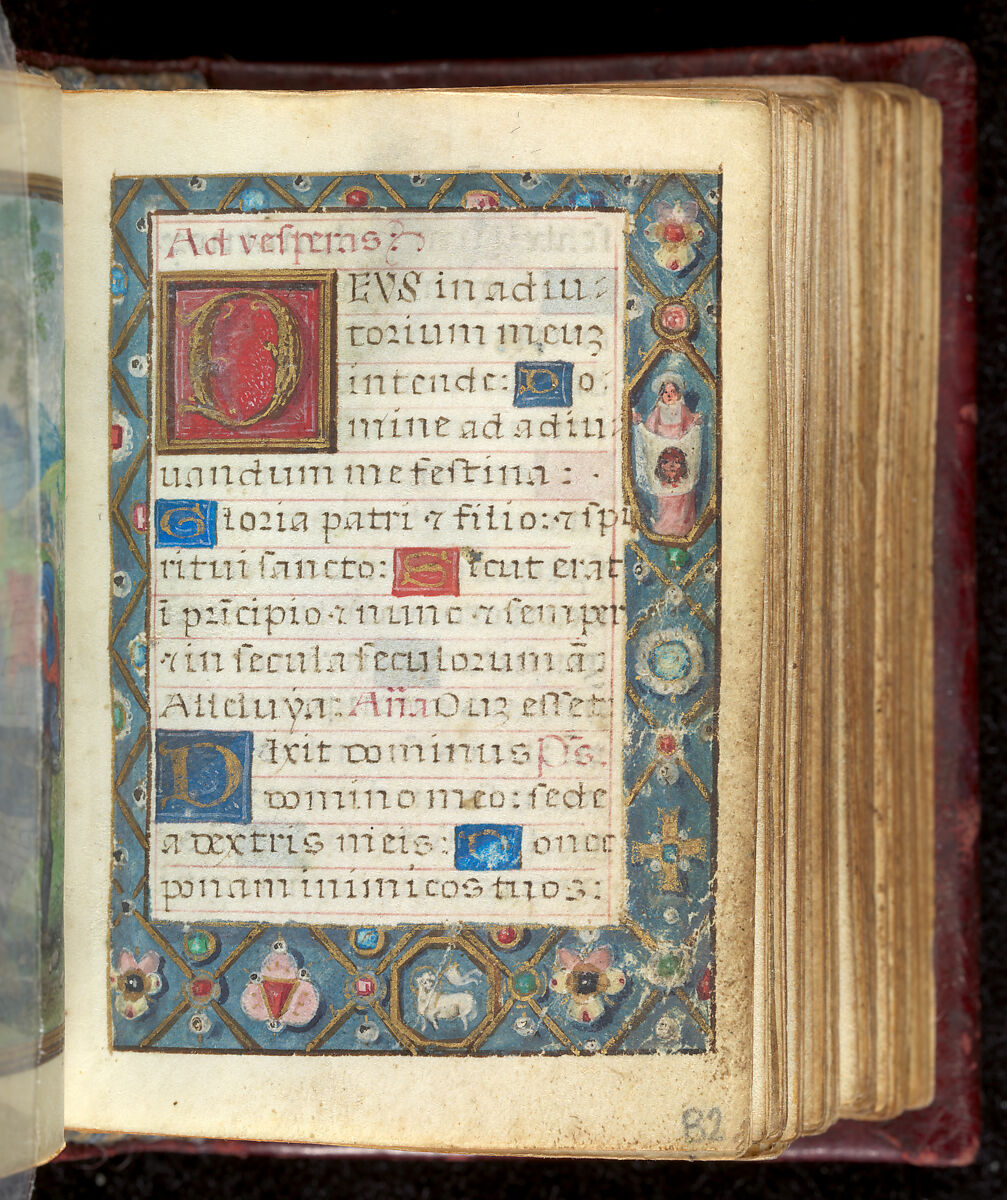 Ad vesperas
DEVS in adiu-
torium meuʒ
intende: Do
mine ad adiu
uandum me festina:
Gloria patri ⁊ filio: ⁊ spi
ritui sancto: Sicut erat
ī pricīpio ⁊ nunc ⁊ semper
⁊ in secula seculorum ā
Alleluya: Aña Duʒ esset
Dixit dominus Ps̄:
domino meo: sede
a dextris meis: Donec
ponam inimicos tuos:
B2